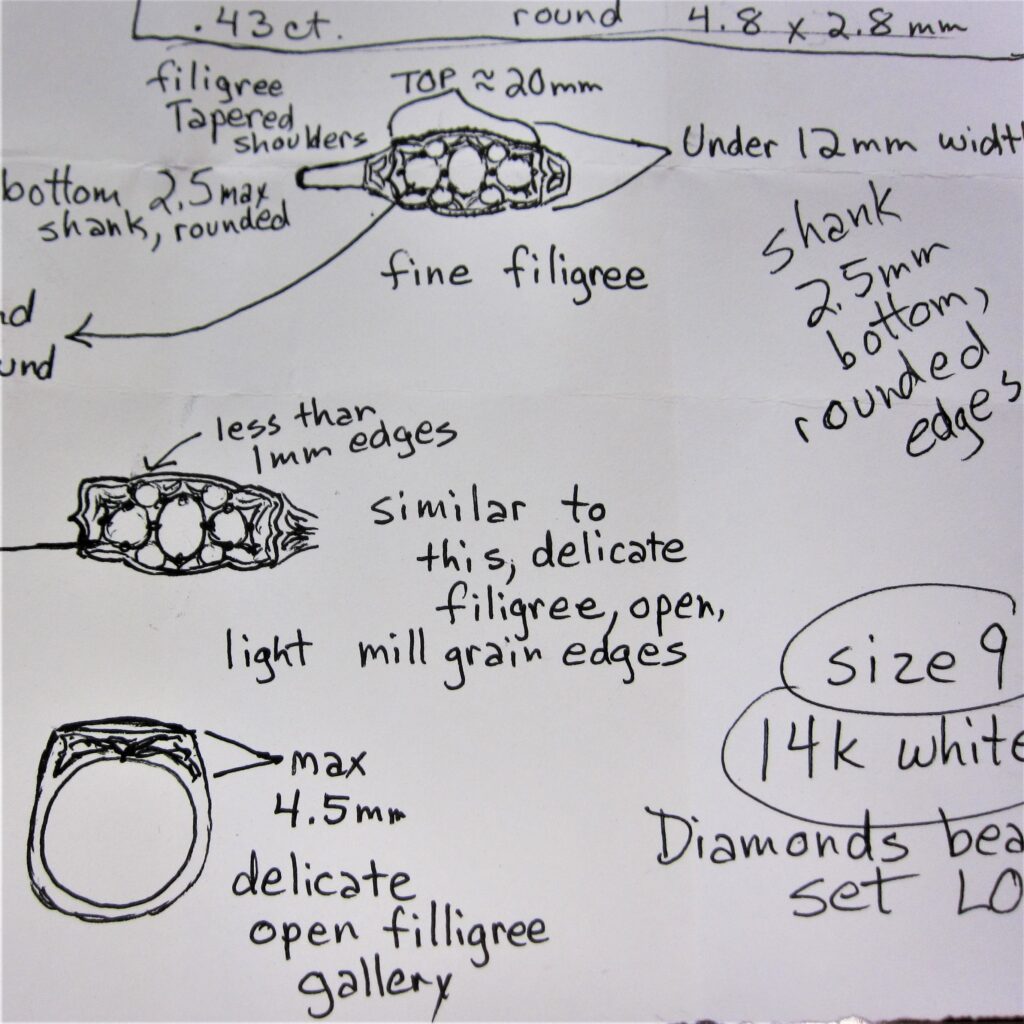 .43 ct. round 4.8 x 2.8 mm
filigree
Tapered
shoulders
TOP ≈ 20mm
Under 12mm width
bottom 2.5 max
shank, rounded
fine filigree
shank
2.5mm
bottom,
rounded
edges
less than
1mm edges
similar to
this, delicate
filigree, open,
light mill grain edges
size 9
14k white
max
4.5mm
Diamonds bea
set LO
delicate
open filligree
gallery